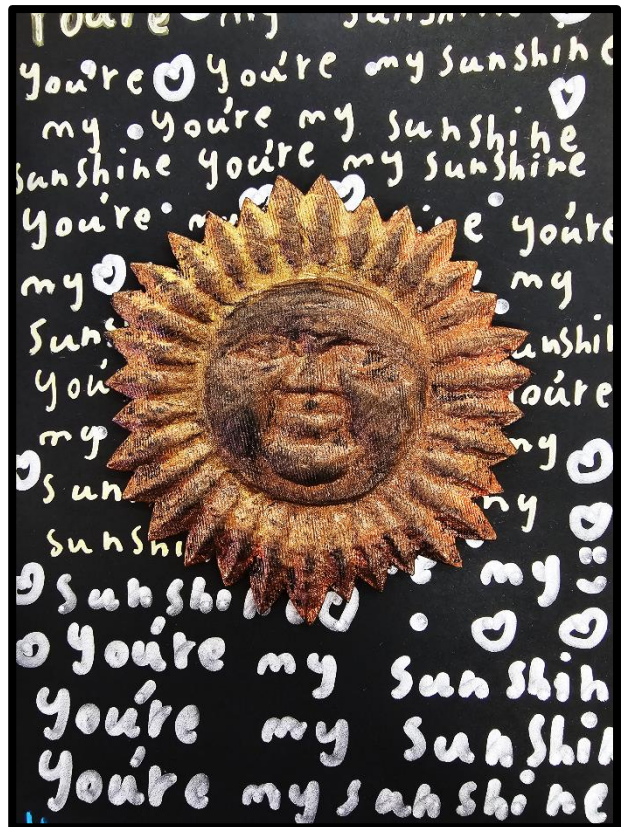 You're my sunshine
you're you're my sunshine
my you're my sunshine
sunshine you're my sunshine
you're you're
my my
you're
my my
my
sunshi
my
sunshi
you're my sunshin
you're my sunshi
you're my sunshine